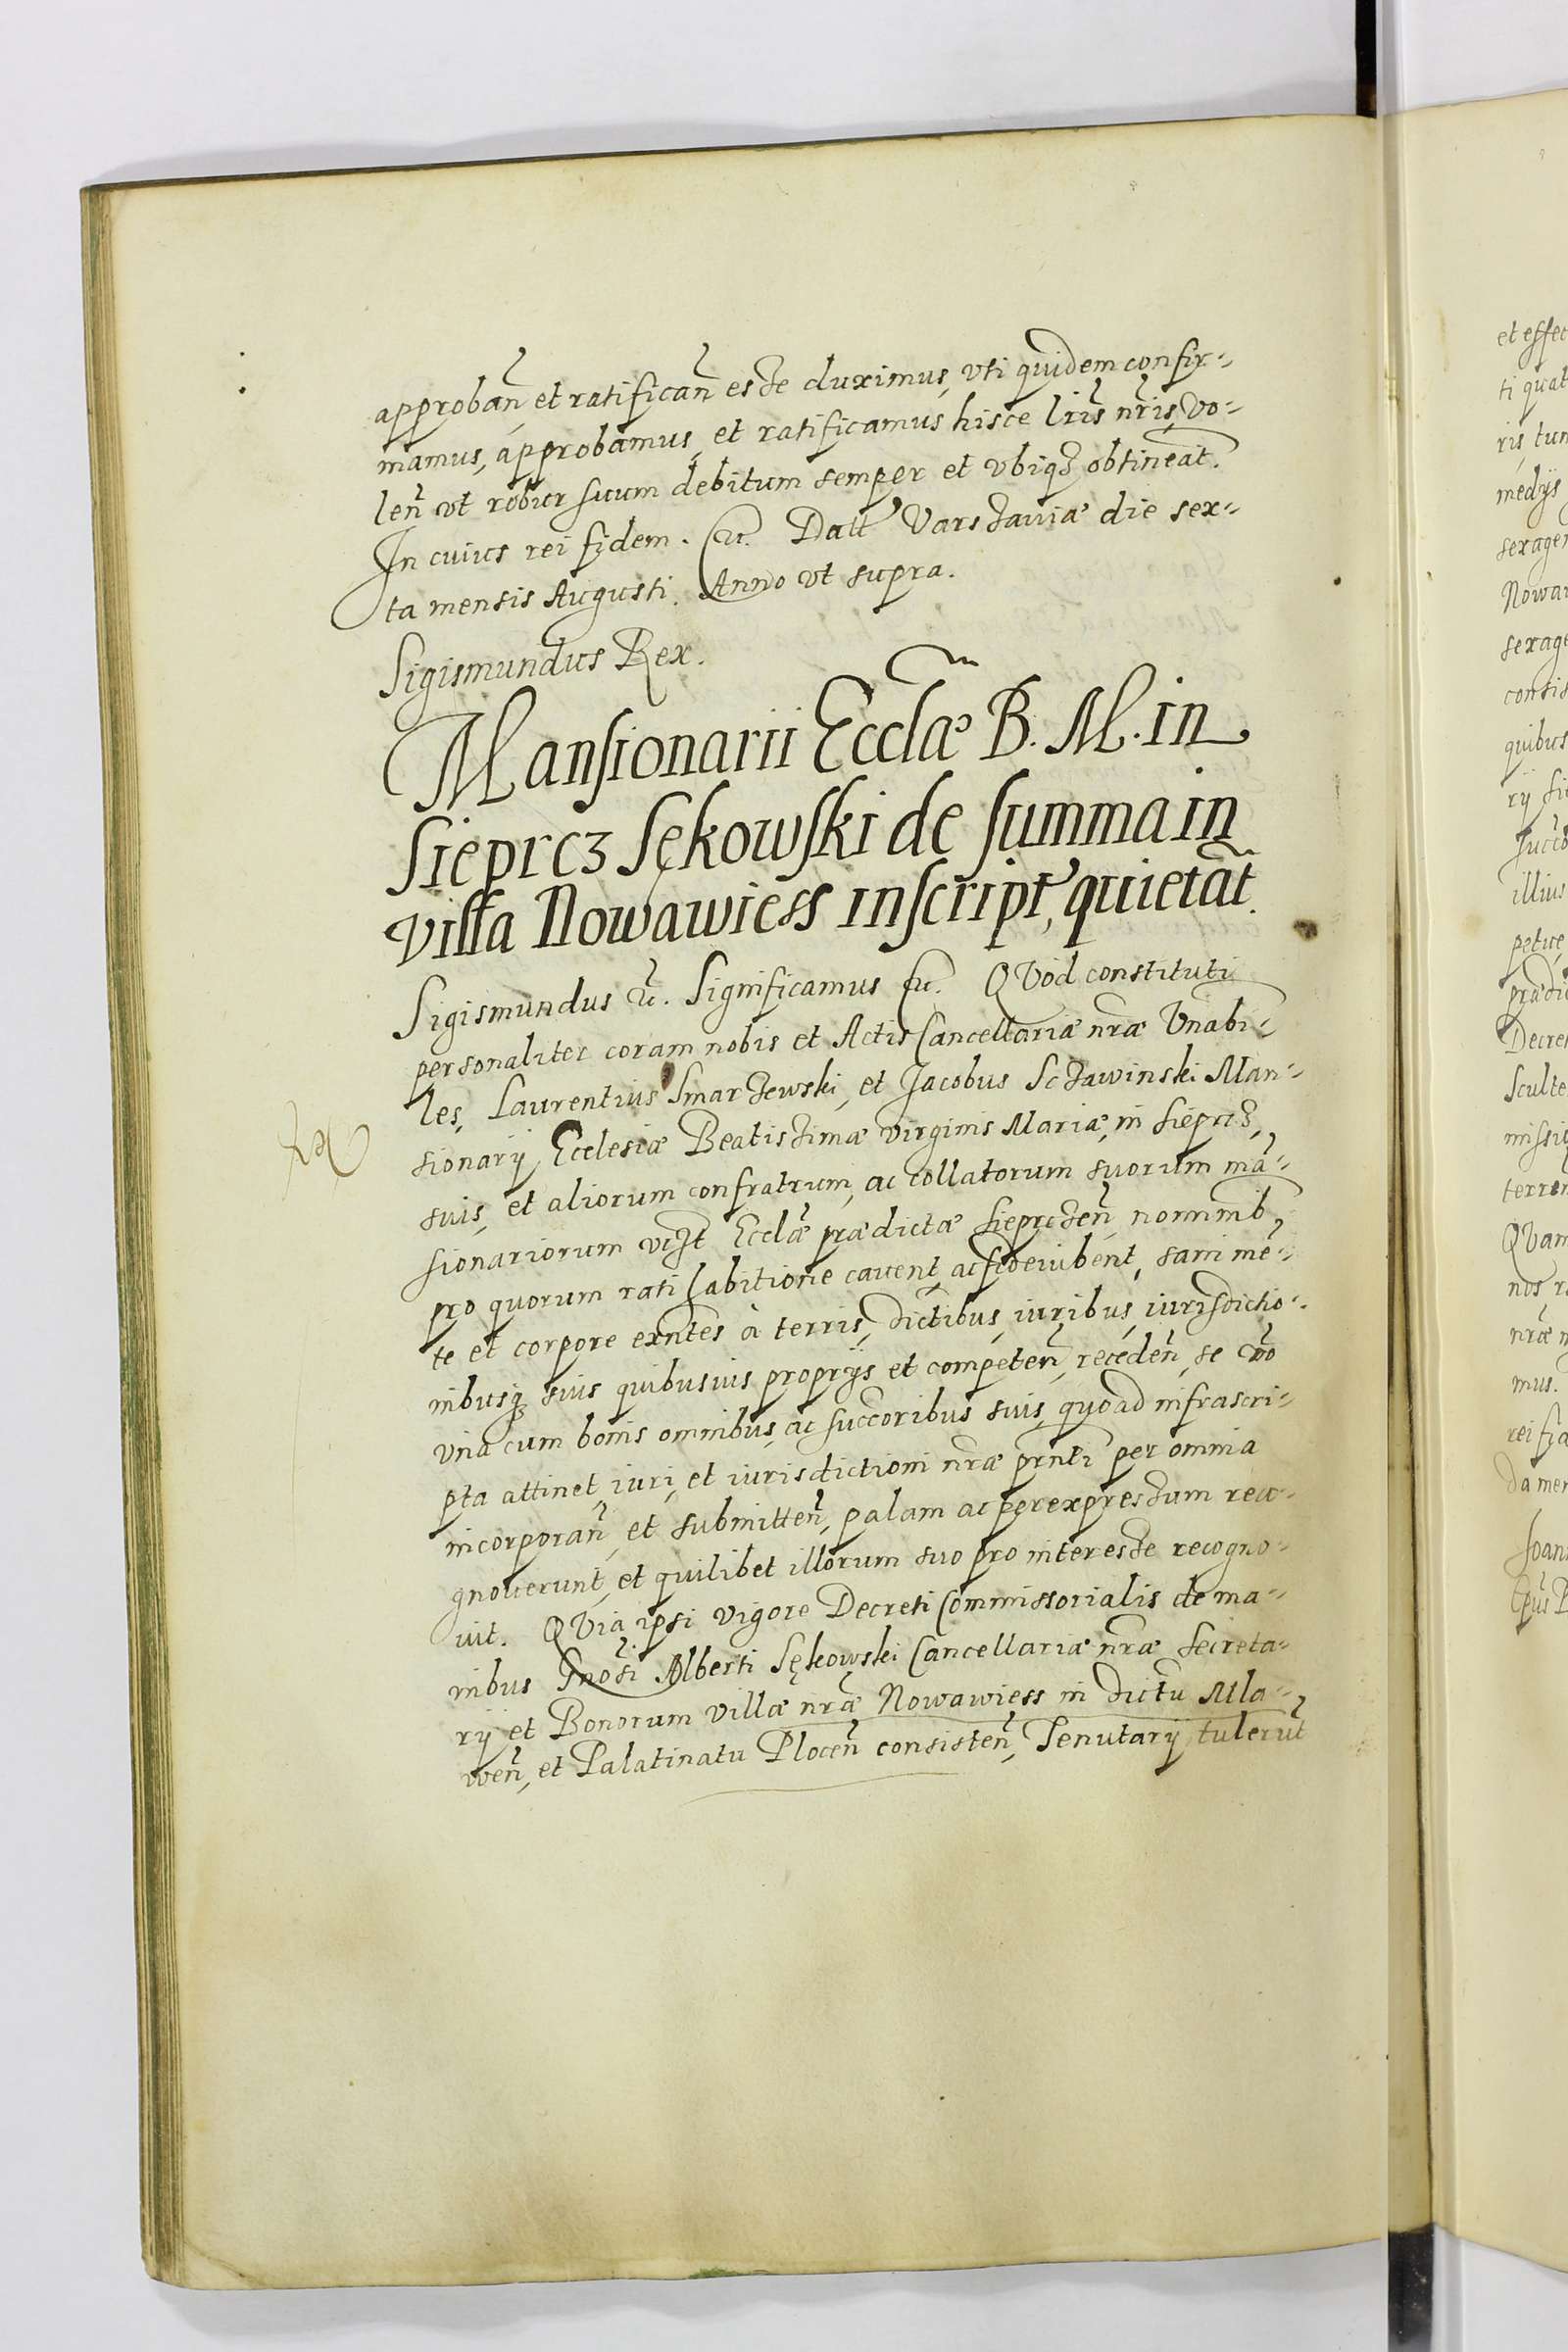 approbañ et ratificañ esse duximus, uti quidem confir-
mamus, approbamus, et ratificamus hisce lris nris, vo-
leñ ut robur suum debitum semper et ubiq3 obtineat.
In cuius rei fidem. etc. Datt Varssaviæ die sex-
ta mensis Augusti. Anno ut supra.
Sigismundus Rex.
Mansionarii Ecclæ B. M. in
Sieprcz Sękowski de summa in
villa Nowawiess inscript, quietat.
Sigismundus etc. Significamus etc. QVod constituti
personaliter coram nobis et Actis Cancellariæ nræ Vnabi-
les, Laurentius Smarzewski, et Jacobus Sczawinski Man-
sionarij Ecclesiæ Beatissimæ virginis Mariæ, in Sieprcz,
suis, et aliorum confratrum, ac collatorum suorum mã-
sionariorum Ecclæ prædictæ Siepreceñ, nominib,
pro quorum rati habitione cavent, ac fideiubent, sani mẽ-
te et corpore exntes à terris, dictibus, iuribus, iurisdictio-
nibusq3 suis quibusuis proprijs et competeñ, recedeñ, se vrõ
vna cum bonis omnibus, ac succoribus suis, quoad infrascri-
pta attinet, iuri, et iurisdictioni nræ prnti per omnia
incorporañ, et submitteñ, palam ac per expressum reco-
gnoverunt, et quilibet illorum suo pro interesse recogno-
uit. QVia ipsi vigore Decreti Commissorialis de ma-
nibus Gnosi Alberti Sękowski Cancellariæ nræ Secreta-
rij et Bonorum villæ nræ Nowawiess in dictu Mla-
weñ, et Palatinatu Ploceñ consisteñ, Tenutarij tulerũt
et effec
ti quat
ris, tum
medijs
sexagen
Nowaw
sexage
consis
quibus
rij si
succo
illius
petue
prædic
Decret
Sculte
missio
terren
QVam
nos r
nræ m
mus.
rei fid
da men
Joan
Epus P